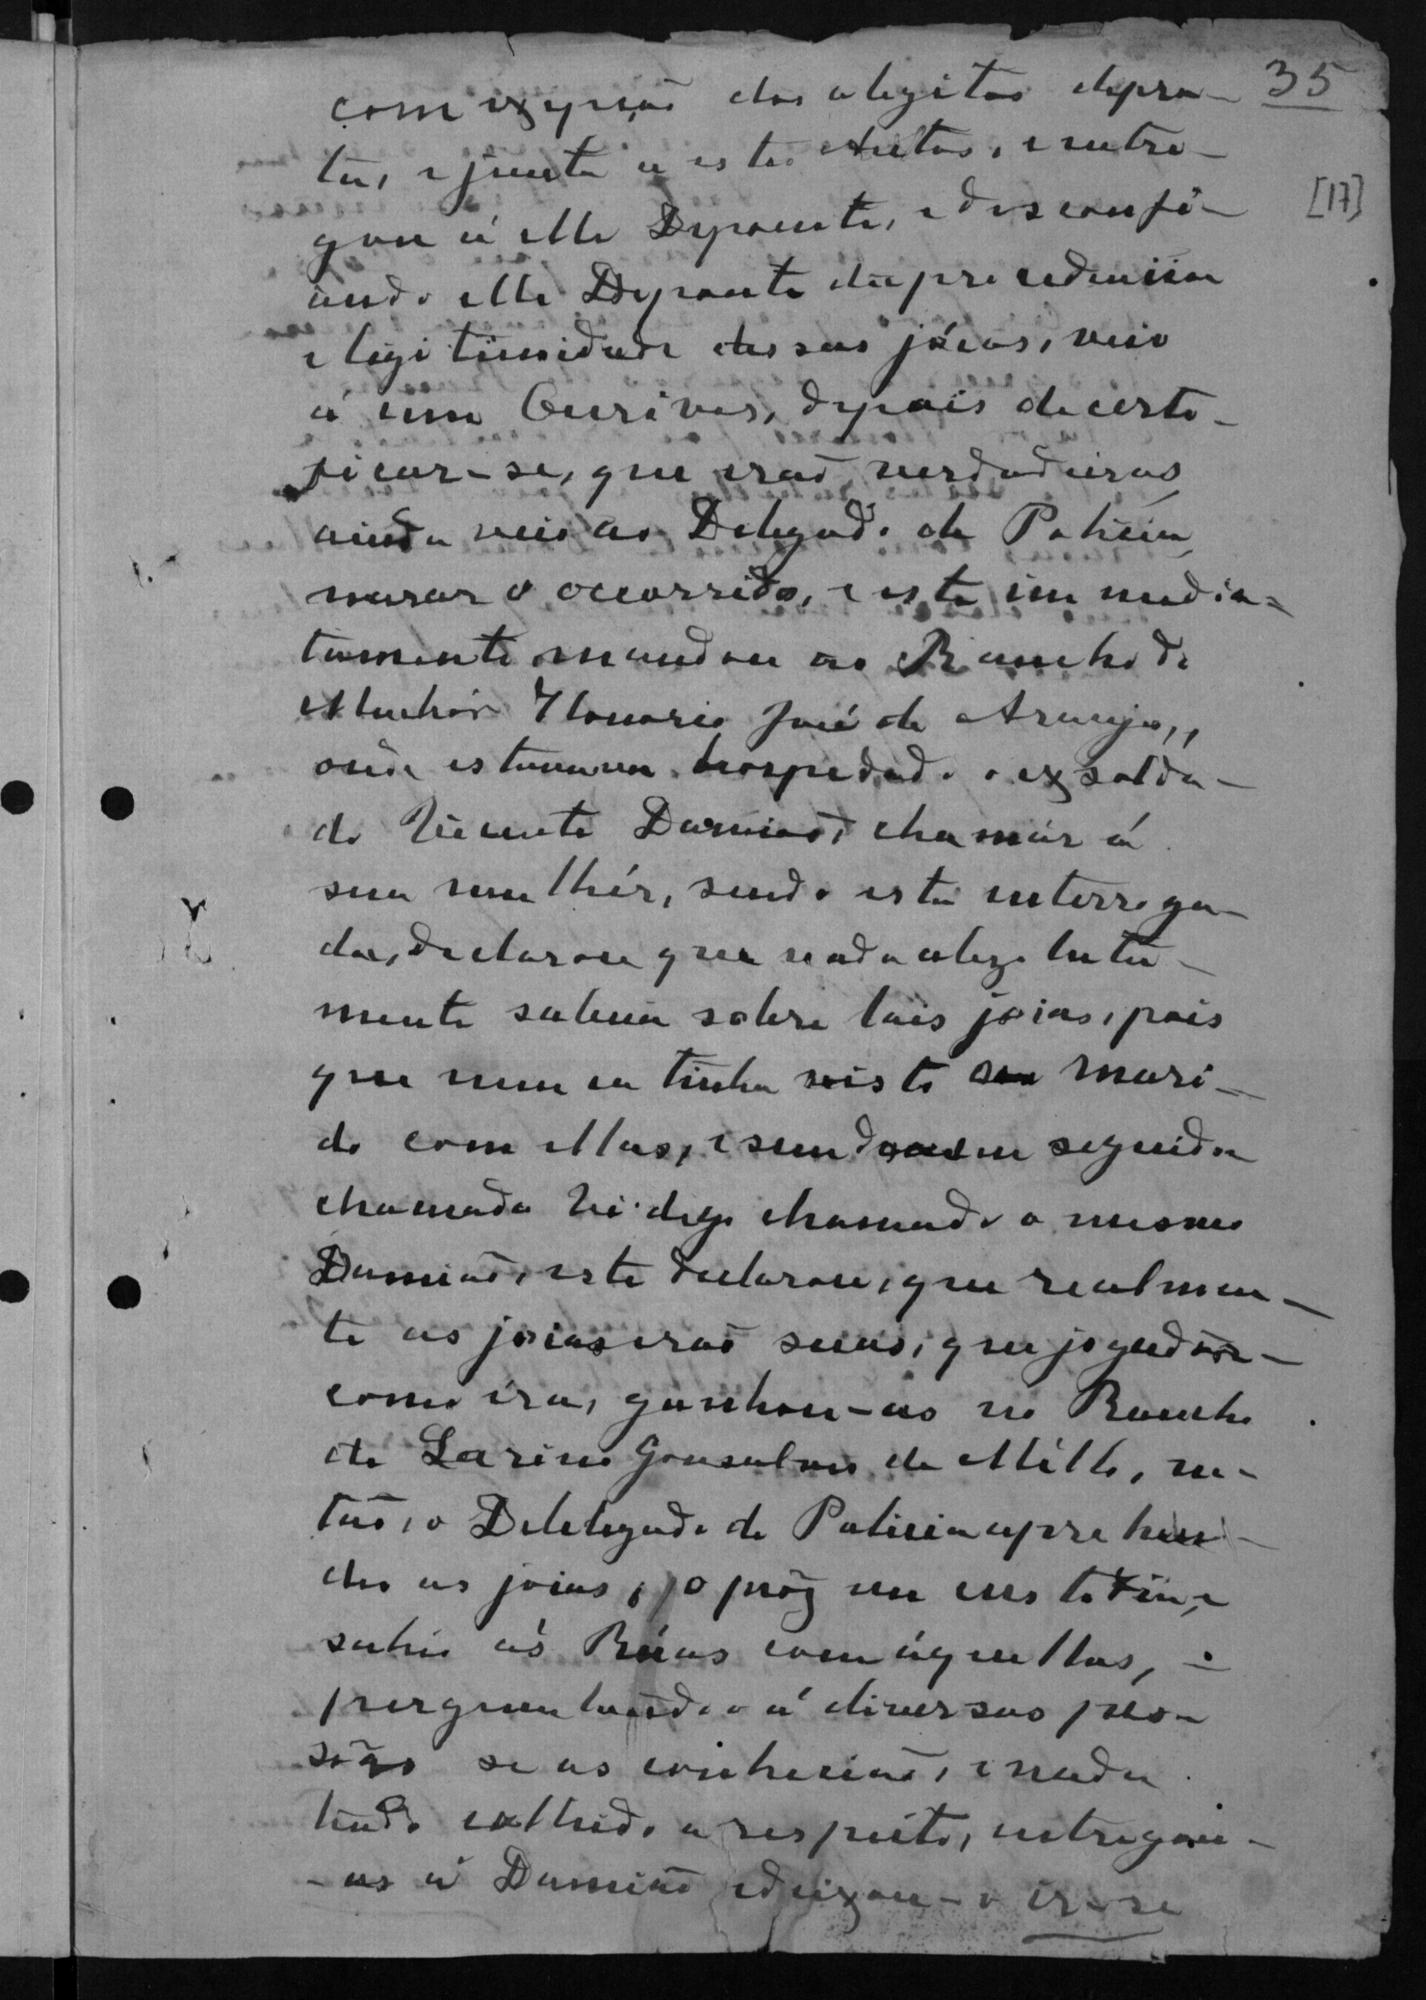 35
com exepção dos obgitos depra-
ta, e junta a estes Autos, entre-
gou á elle Dyponente, e disconfi-
ando elle Dyponente da procedencia
e legitimidade dessas jóias, veio
á um Ourives, dypois de certi-
ficar-se, que erão verdadeiras
ainda veio ao Delegado de Policia
narar o occorrido, e este immedia-
tamente mandou ao Rancho de
Melchior Honorio José de Araujo,,
onde estavava hospedado o ex solda-
do Vicente Damião, chamár á
sua mulhér, sendo esta interroga-
da, declarou que nada abzoluta-
mente sabia sobre tais joias, pois
que nunca tinha visto seu mari-
do com ellas, e sendo em seguida
chamada Vi digo chamado o mesmo
Damião, este declarou, que realmen-
te as joias erão suas, que jogador
como éra, ganhou-as no Rancho
de Larino Gonsalves de Mello, en-
tão, o Delelegado de Policia aprehen-
deo as joias, e o pôz em custodia, e
sahio ás Rúas com áquellas,
perguntando á diversas pes-
sôas se as conhecião, e nada
tendo colhido a respeito, entregou-
-as á Damião e deixou-o ir-se
[17]